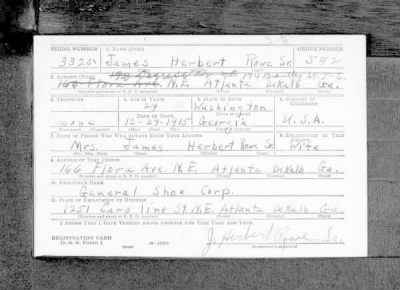 SERIAL NUMBER 1. NAME (Print) ORDER NUMBER
33251 James Herbert Rowe Sr. 592
2. ADDRESS (Print)
166 Flora Ave. N.E. Atlanta DeKalb Ga.
3. TELEPHONE 4. AGE IN YEARS 5. PLACE OF BIRTH 6. COUNTRY OF CITIZENSHIP
24 Washington
DATE OF BIRTH
none 12-29-1915 Georgia U.S.A.
7. NAME OF PERSON WHO WILL ALWAYS KNOW YOUR ADDRESS 8. RELATIONSHIP OF THAT PERSON
Mrs. James Herbert Rowe Sr.
9. ADDRESS OF THAT PERSON
166 Flora Ave. N.E. Atlanta DeKalb Ga.
10. EMPLOYER'S NAME
General Shoe Corp.
11. PLACE OF EMPLOYMENT OR BUSINESS
1251 Caroline St. N.E. Atlanta DeKalb Ga.
I AFFIRM THAT I HAVE VERIFIED ABOVE ANSWERS AND THAT THEY ARE TRUE.
REGISTRATION CARD
D. S. S. FORM 1
J. Herbert Rowe Sr.